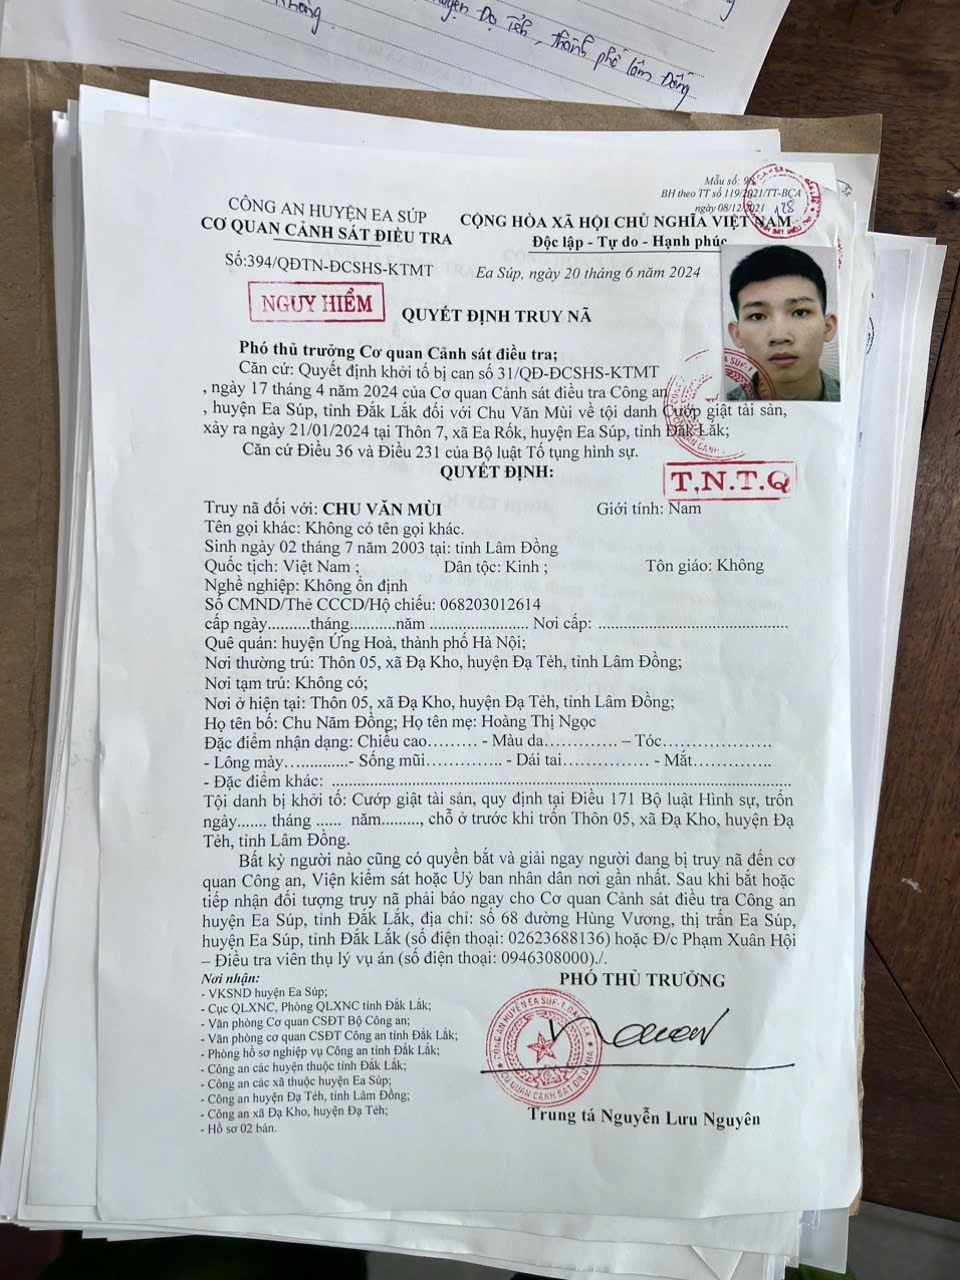 Không.
huyện Đạ Tẻh, thành phố Lâm Đồng
Mẫu số:
BH theo TT số 119/2021/TT-BCA
ngày 08/12/2021
128
CÔNG AN HUYỆN EA SÚP
CƠ QUAN CẢNH SÁT ĐIỀU TRA
CỘNG HÒA XÃ HỘI CHỦ NGHĨA VIỆT NAM
Độc lập - Tự do - Hạnh phúc
Số:394/QĐTN-ĐCSHS-KTMT
Ea Súp, ngày 20 tháng 6 năm 2024
NGUY HIỂM
QUYẾT ĐỊNH TRUY NÃ
Phó thủ trưởng Cơ quan Cảnh sát điều tra;
Căn cứ: Quyết định khởi tố bị can số 31/QĐ-ĐCSHS-KTMT
, ngày 17 tháng 4 năm 2024 của Cơ quan Cảnh sát điều tra Công an
, huyện Ea Súp, tỉnh Đắk Lắk đối với Chu Văn Mùi về tội danh Cướp giật tài sản,
xảy ra ngày 21/01/2024 tại Thôn 7, xã Ea Rốk, huyện Ea Súp, tỉnh Đắk Lắk;
Căn cứ Điều 36 và Điều 231 của Bộ luật Tố tụng hình sự.
QUYẾT ĐỊNH:
T.N.T.Q
Truy nã đối với: CHU VĂN MÙI Giới tính: Nam
Tên gọi khác: Không có tên gọi khác.
Sinh ngày 02 tháng 7 năm 2003 tại: tỉnh Lâm Đồng
Quốc tịch: Việt Nam ; Dân tộc: Kinh ; Tôn giáo: Không
Nghề nghiệp: Không ổn định
Số CMND/Thẻ CCCD/Hộ chiếu: 068203012614
cấp ngày..........tháng..............năm ...................... Nơi cấp: ..........................................
Quê quán: huyện Ứng Hoà, thành phố Hà Nội;
Nơi thường trú: Thôn 05, xã Đạ Kho, huyện Đạ Tẻh, tỉnh Lâm Đồng;
Nơi tạm trú: Không có;
Nơi ở hiện tại: Thôn 05, xã Đạ Kho, huyện Đạ Tẻh, tỉnh Lâm Đồng;
Họ tên bố: Chu Năm Đồng; Họ tên mẹ: Hoàng Thị Ngọc
Đặc điểm nhận dạng: Chiều cao……… - Màu da…………. – Tóc………………
- Lông mày…...............- Sống mũi…………. - Dái tai…………… - Mắt………….
- Đặc điểm khác: ..........................................................................................
Tội danh bị khởi tố: Cướp giật tài sản, quy định tại Điều 171 Bộ luật Hình sự, trốn
ngày....... tháng ...... năm.........., chỗ ở trước khi trốn Thôn 05, xã Đạ Kho, huyện Đạ
Tẻh, tỉnh Lâm Đồng.
Bất kỳ người nào cũng có quyền bắt và giải ngay người đang bị truy nã đến cơ
quan Công an, Viện kiểm sát hoặc Uỷ ban nhân dân nơi gần nhất. Sau khi bắt hoặc
tiếp nhận đối tượng truy nã phải báo ngay cho Cơ quan Cảnh sát điều tra Công an
huyện Ea Súp, tỉnh Đắk Lắk, địa chỉ: số 68 đường Hùng Vương, thị trấn Ea Súp,
huyện Ea Súp, tỉnh Đắk Lắk (số điện thoại: 02623688136) hoặc Đ/c Phạm Xuân Hội
– Điều tra viên thụ lý vụ án (số điện thoại: 0946308000)./.
Nơi nhận:
- VKSND huyện Ea Súp;
- Cục QLXNC, Phòng QLXNC tỉnh Đắk Lắk;
- Văn phòng Cơ quan CSĐT Bộ Công an;
- Văn phòng cơ quan CSĐT Công an tỉnh Đắk Lắk;
- Phòng hồ sơ nghiệp vụ Công an tỉnh Đắk Lắk;
- Công an các huyện thuộc tỉnh Đắk Lắk;
- Công an các xã thuộc huyện Ea Súp;
- Công an huyện Đạ Tẻh, tỉnh Lâm Đồng;
- Công an xã Đạ Kho, huyện Đạ Tẻh;
- Hồ sơ 02 bản.
PHÓ THỦ TRƯỞNG
CÔNG AN HUYỆN EA SUP-T. ĐẮK LẮK
CƠ QUAN CẢNH SÁT ĐIỀU TRA
Trung tá Nguyễn Lưu Nguyên